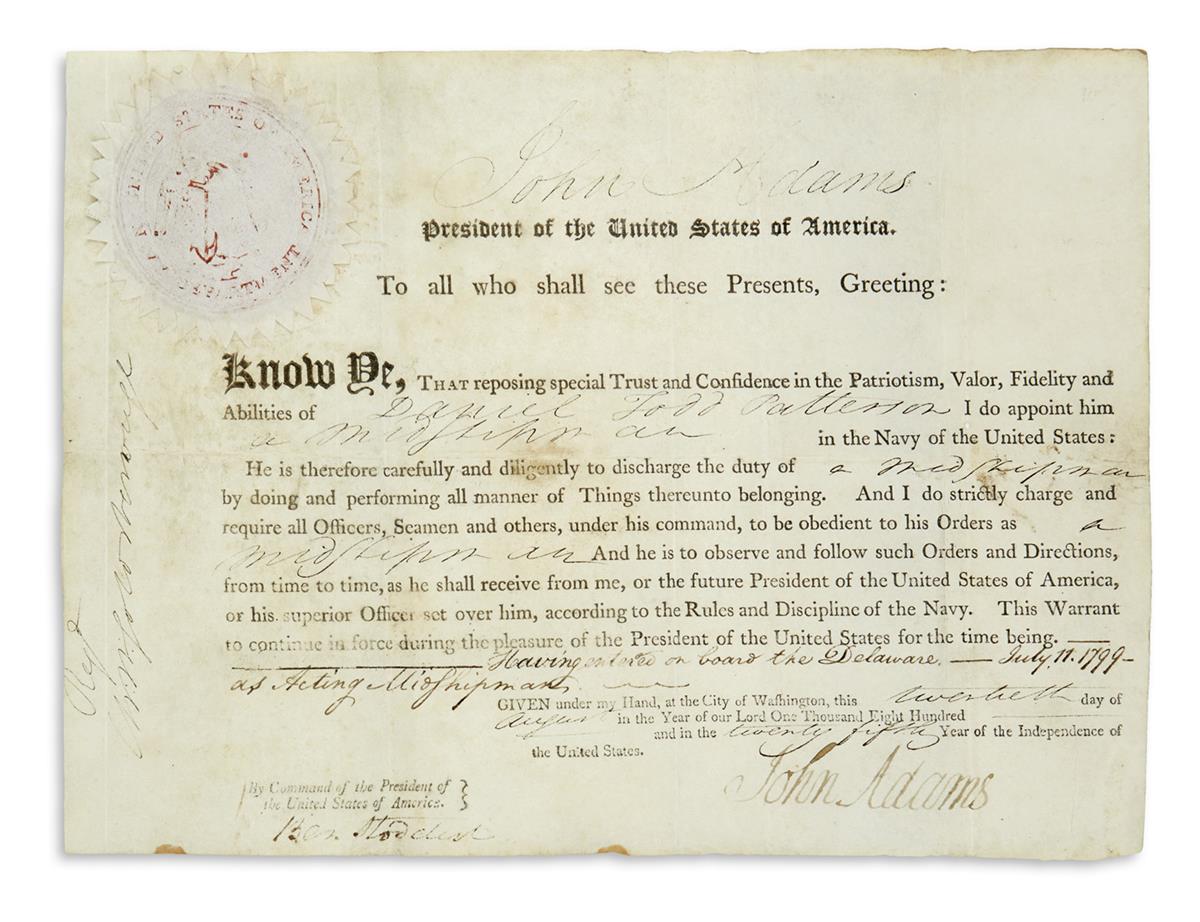 UNITED STATES OF AMERICA
John Adams
President of the United States of America.
To all who shall see these Presents, Greeting:
Know Ye, THAT reposing special Trust and Confidence in the Patriotism, Valor, Fidelity and
Abilities of Daniel Todd Patterson I do appoint him
a Midshipman in the Navy of the United States:
He is therefore carefully and diligently to discharge the duty of a Midshipman
by doing and performing all manner of Things thereunto belonging. And I do strictly charge and
require all Officers, Seamen and others, under his command, to be obedient to his Orders as a
Midshipman And he is to observe and follow such Orders and Directions,
from time to time, as he shall receive from me, or the future President of the United States of America,
or his superior Officer set over him, according to the Rules and Discipline of the Navy. This Warrant
to continue in force during the pleasure of the President of the United States for the time being. —
— Having entered on board the Delaware. — July 11. 1799 —
as Acting Midshipman. —
GIVEN under my Hand, at the City of Washington, this twentieth day of
August in the Year of our Lord One Thousand Eight Hundred
and in the twenty fifth Year of the Independence of
the United States.
John Adams
By Command of the President of
the United States of America.
Ben Stoddert